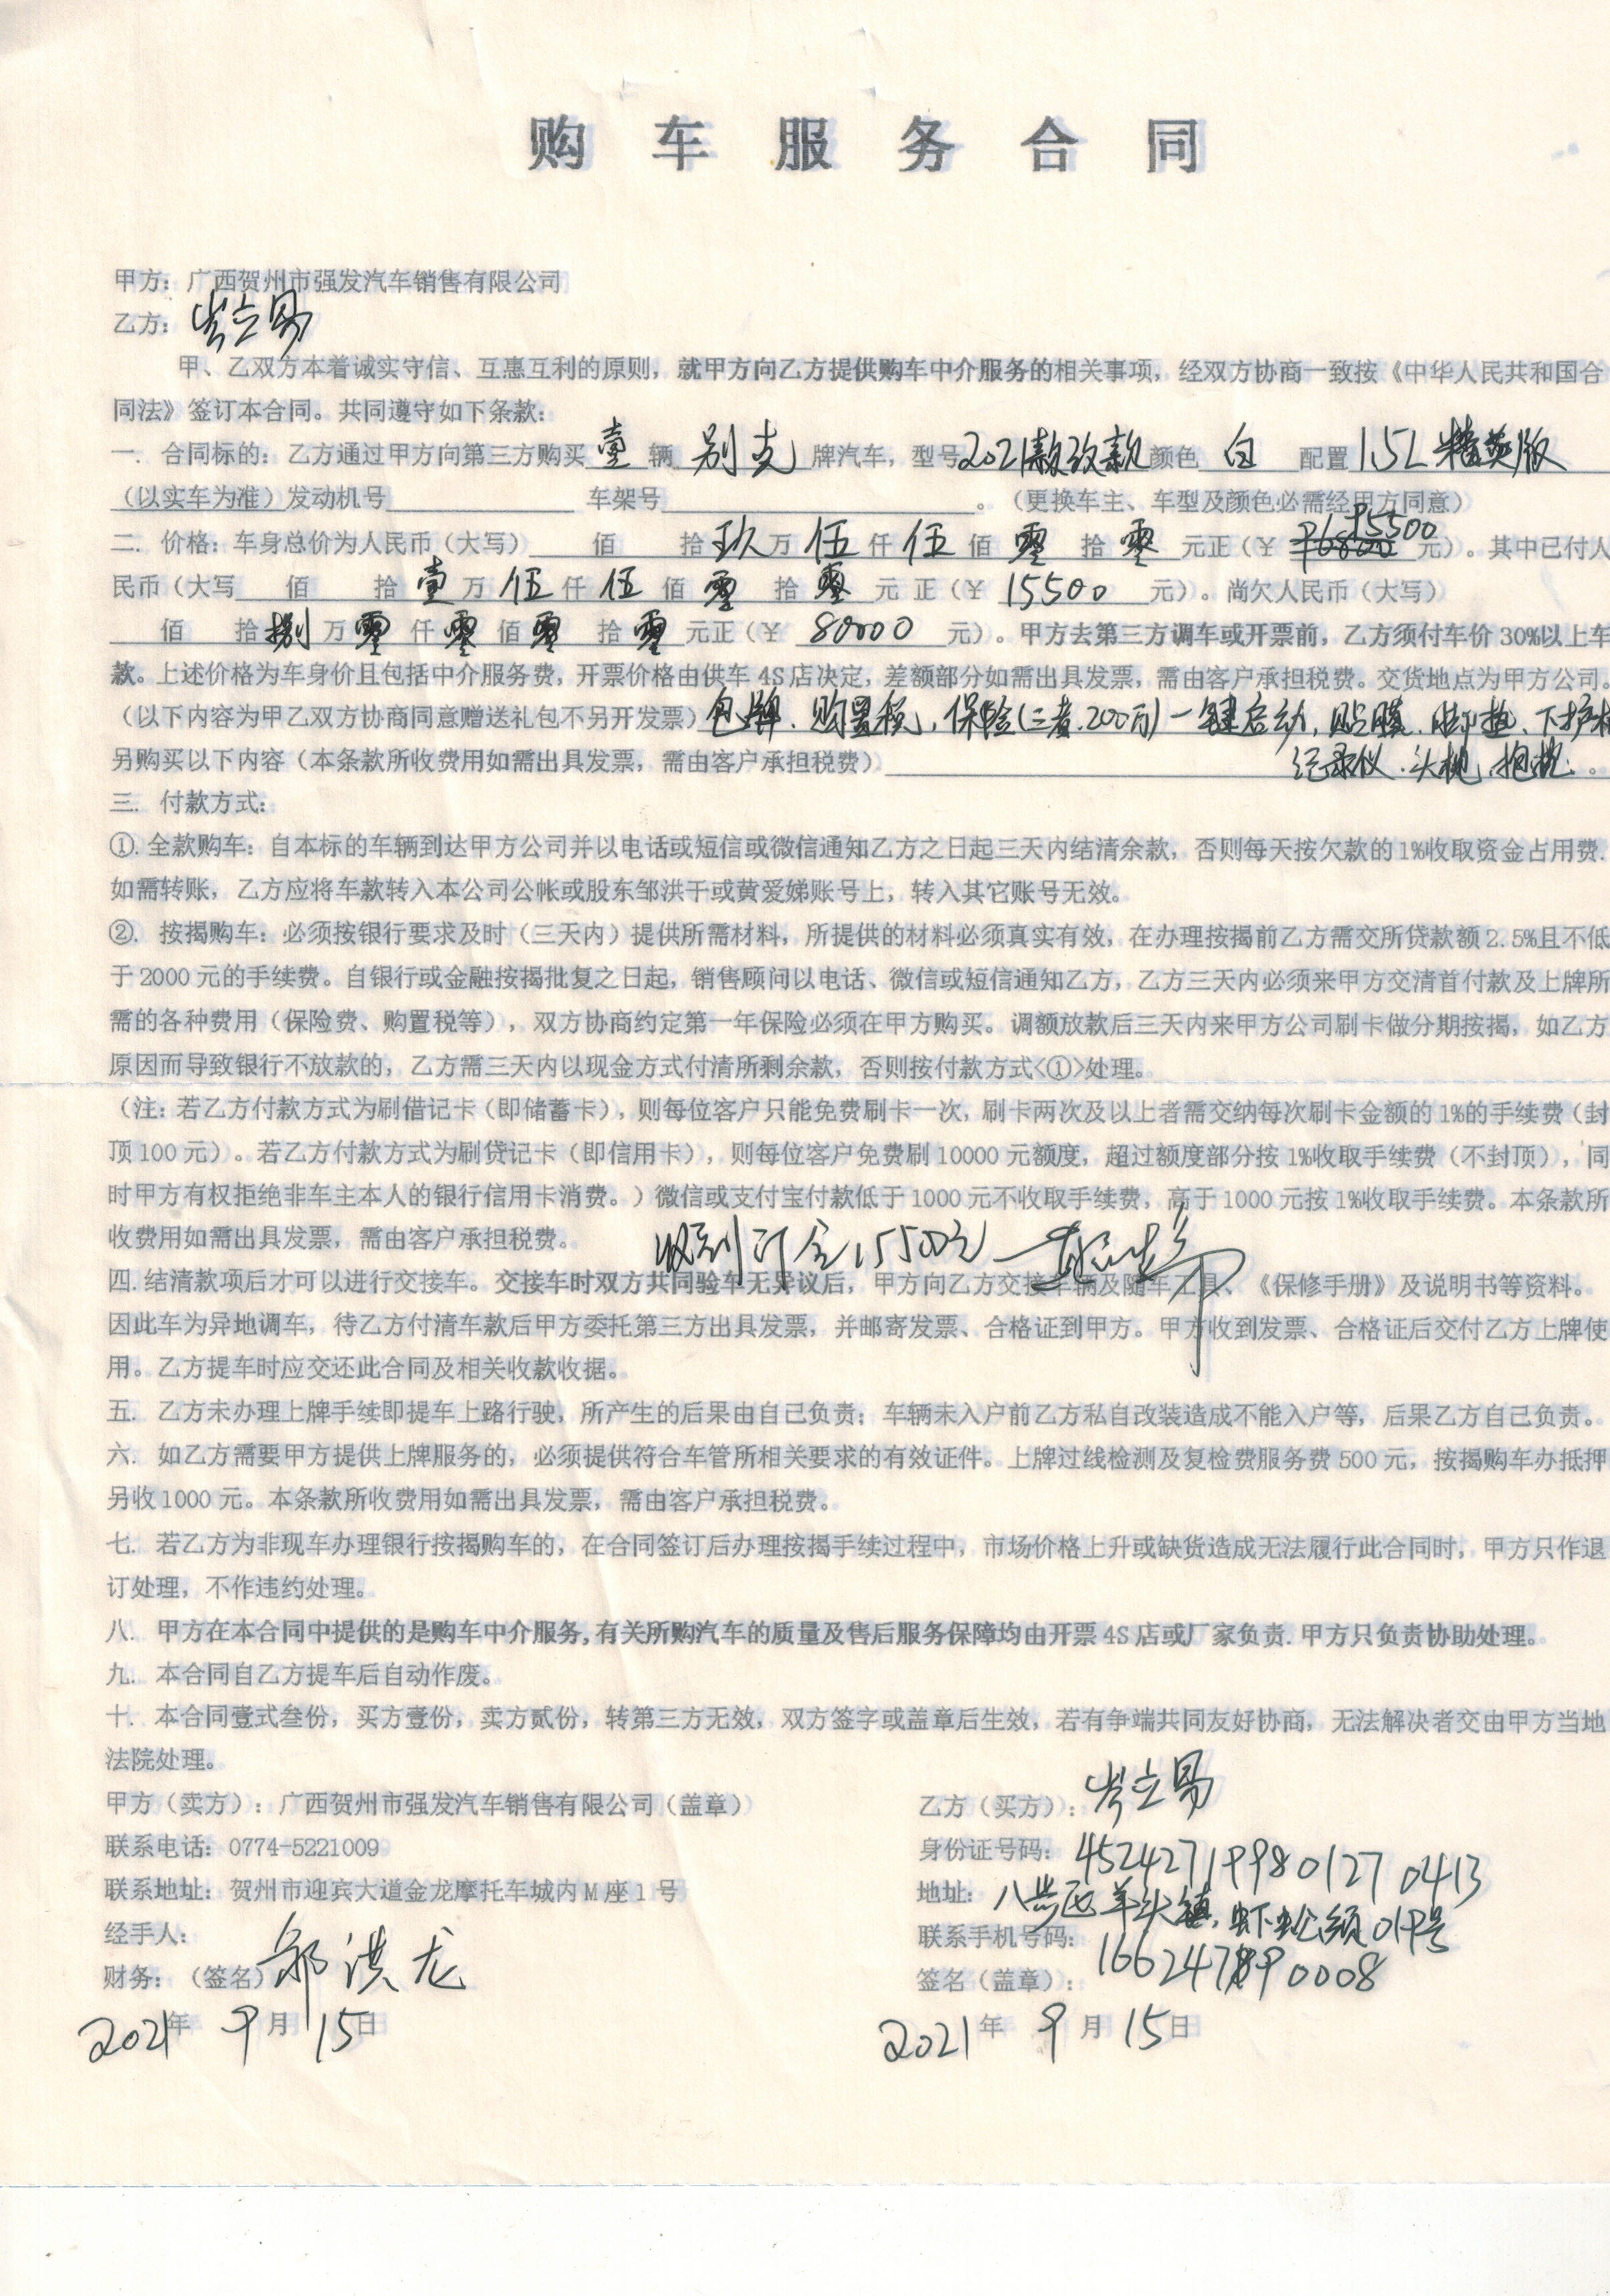 购车服务合同
甲方：广西贺州市强发汽车销售有限公司
乙方：岑立易
甲、乙双方本着诚实守信、互惠互利的原则，就甲方向乙方提供购车中介服务的相关事项，经双方协商一致按《中华人民共和国合
同法》签订本合同。共同遵守如下条款：
一. 合同标的：乙方通过甲方向第三方购买 壹 辆 别克 牌汽车，型号 2021款改款 颜色 白 配置 1.5L 精英版
（以实车为准）发动机号 车架号 。（更换车主、车型及颜色必需经甲方同意）
二. 价格：车身总价为人民币（大写） 佰 拾 玖 万 伍 仟 伍 佰 零 拾 零 元正（￥ 95500 元）。其中已付人
民币（大写 佰 拾 壹 万 伍 仟 伍 佰 零 拾 零 元 正（￥ 15500 元）。尚欠人民币（大写）
佰 拾 捌 万 零 仟 零 佰 零 拾 零 元正（￥ 80000 元）。甲方去第三方调车或开票前，乙方须付车价 30%以上车
款。上述价格为车身价且包括中介服务费，开票价格由供车 4S 店决定，差额部分如需出具发票，需由客户承担税费。交货地点为甲方公司。
（以下内容为甲乙双方协商同意赠送礼包不另开发票）包牌、购置税，保险（三者、200万）一键启动，贴膜、脚垫、下护板
另购买以下内容（本条款所收费用如需出具发票，需由客户承担税费） 记录仪、头枕、抱枕 。
三. 付款方式：
①. 全款购车：自本标的车辆到达甲方公司并以电话或短信或微信通知乙方之日起三天内结清余款，否则每天按欠款的 1%收取资金占用费.
如需转账，乙方应将车款转入本公司公帐或股东邹洪干或黄爱娣账号上，转入其它账号无效。
②. 按揭购车：必须按银行要求及时（三天内）提供所需材料，所提供的材料必须真实有效，在办理按揭前乙方需交所贷款额 2.5%且不低
于 2000 元的手续费。自银行或金融按揭批复之日起，销售顾问以电话、微信或短信通知乙方，乙方三天内必须来甲方交清首付款及上牌所
需的各种费用（保险费、购置税等），双方协商约定第一年保险必须在甲方购买。调额放款后三天内来甲方公司刷卡做分期按揭，如乙方
原因而导致银行不放款的，乙方需三天内以现金方式付清所剩余款，否则按付款方式<①>处理。
（注：若乙方付款方式为刷借记卡（即储蓄卡），则每位客户只能免费刷卡一次，刷卡两次及以上者需交纳每次刷卡金额的 1%的手续费（封
顶 100 元）。若乙方付款方式为刷贷记卡（即信用卡），则每位客户免费刷 10000 元额度，超过额度部分按 1%收取手续费（不封顶），同
时甲方有权拒绝非车主本人的银行信用卡消费。）微信或支付宝付款低于 1000 元不收取手续费，高于 1000 元按 1%收取手续费。本条款所
收费用如需出具发票，需由客户承担税费。 收到订金15500元
四. 结清款项后才可以进行交接车。交接车时双方共同验车无异议后，甲方向乙方交接车辆及随车工具、《保修手册》及说明书等资料。
因此车为异地调车，待乙方付清车款后甲方委托第三方出具发票，并邮寄发票、合格证到甲方。甲方收到发票、合格证后交付乙方上牌使
用。乙方提车时应交还此合同及相关收款收据。
五. 乙方未办理上牌手续即提车上路行驶，所产生的后果由自己负责；车辆未入户前乙方私自改装造成不能入户等，后果乙方自己负责。
六. 如乙方需要甲方提供上牌服务的，必须提供符合车管所相关要求的有效证件。上牌过线检测及复检费服务费 500 元，按揭购车办抵押
另收 1000 元。本条款所收费用如需出具发票，需由客户承担税费。
七. 若乙方为非现车办理银行按揭购车的，在合同签订后办理按揭手续过程中，市场价格上升或缺货造成无法履行此合同时，甲方只作退
订处理，不作违约处理。
八. 甲方在本合同中提供的是购车中介服务,有关所购汽车的质量及售后服务保障均由开票 4S 店或厂家负责. 甲方只负责协助处理。
九. 本合同自乙方提车后自动作废。
十. 本合同壹式叁份，买方壹份，卖方贰份，转第三方无效，双方签字或盖章后生效，若有争端共同友好协商，无法解决者交由甲方当地
法院处理。
甲方（卖方）：广西贺州市强发汽车销售有限公司（盖章） 乙方（买方）：岑立易
联系电话：0774-5221009 身份证号码：452427199801270413
联系地址：贺州市迎宾大道金龙摩托车城内 M 座 1 号 地址：八步区羊头镇, 019号
经手人： 联系手机号码：
财务：（签名）邹洪龙 签名（盖章）：
2021年 9月 15日 2021年 9月 15日